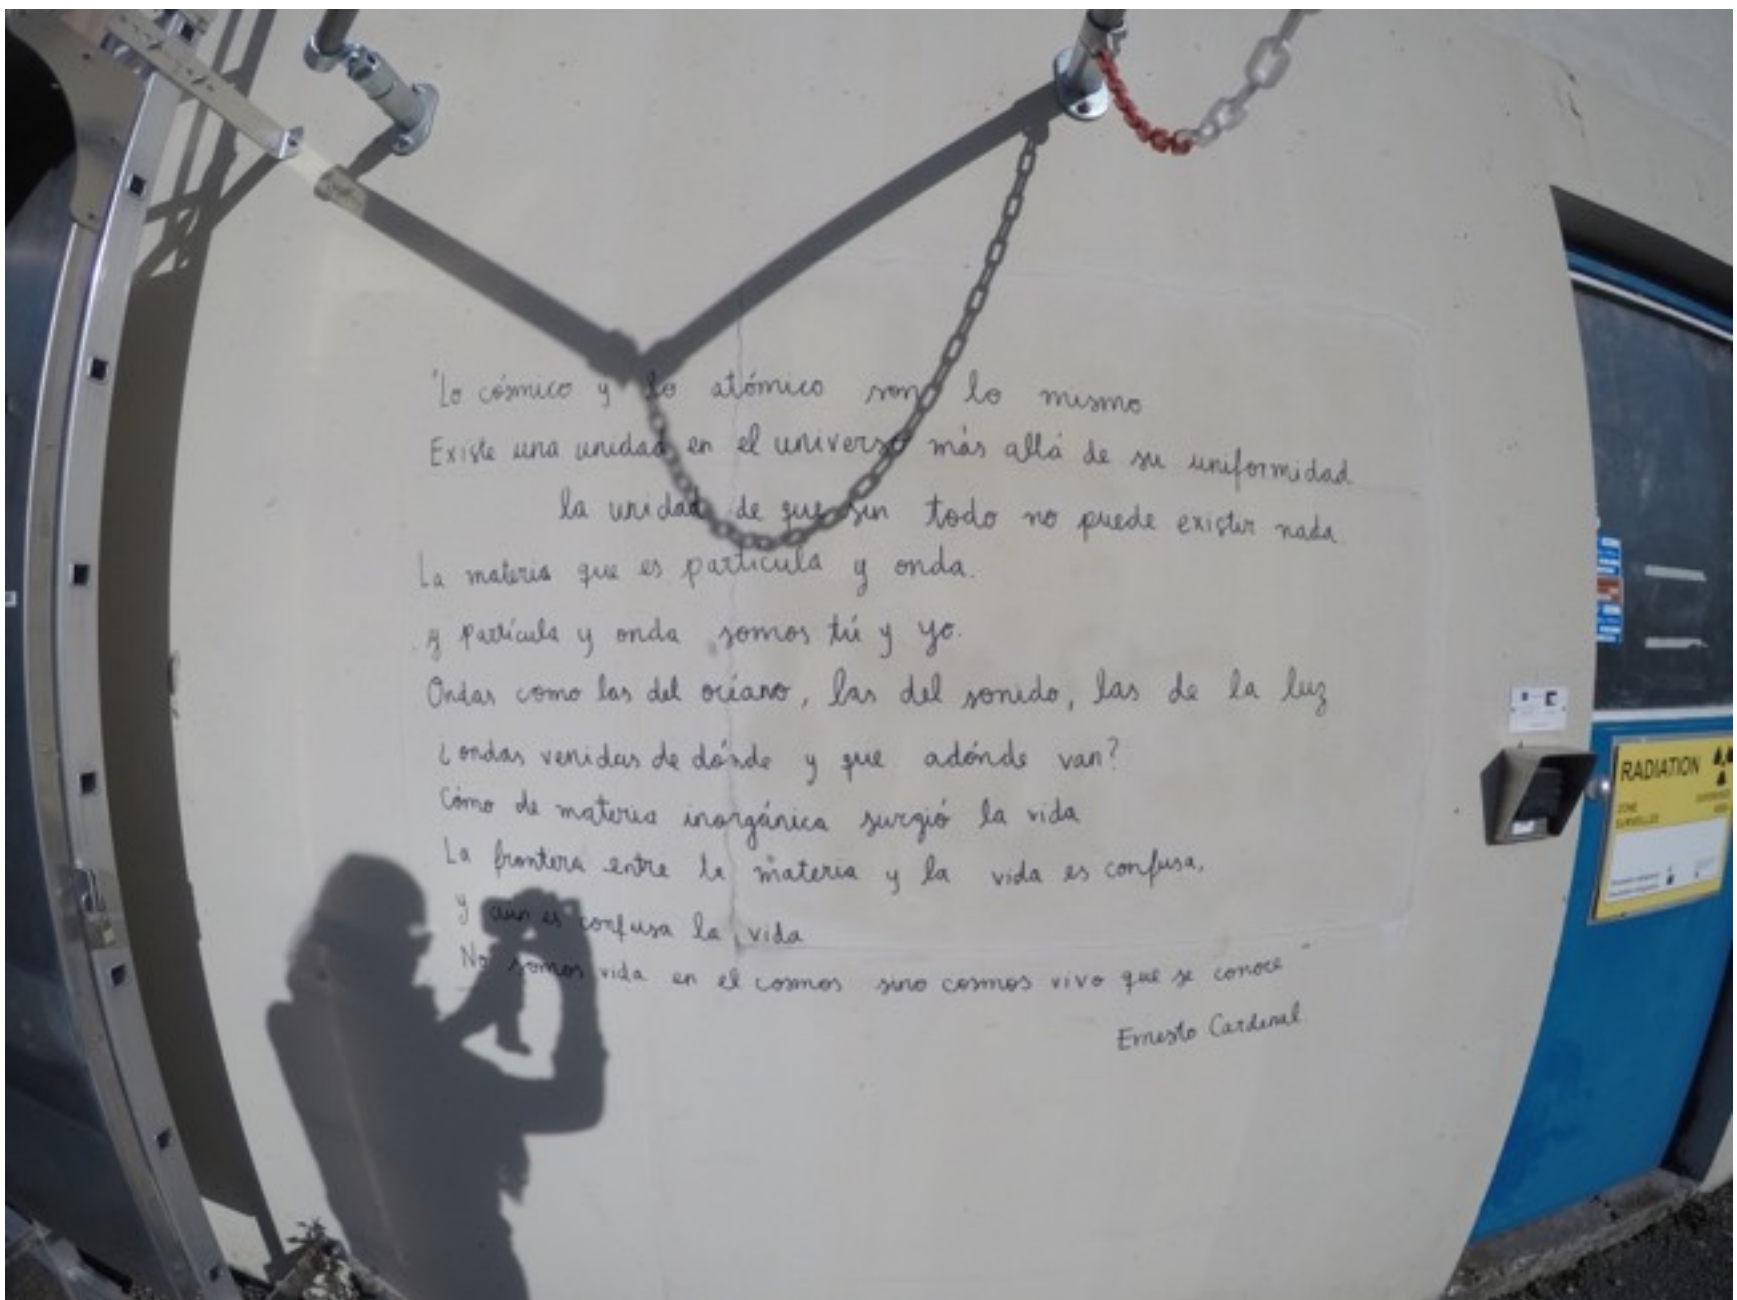 "Lo cósmico y lo atómico son lo mismo
Existe una unidad en el universo más allá de su uniformidad
la unidad de que sin todo no puede existir nada.
La materia que es partícula y onda.
y partícula y onda somos tú y yo.
Ondas como las del océano, las del sonido, las de la luz
¿ondas venidas de dónde y que adónde van?
Cómo de materia inorgánica surgió la vida
La frontera entre la materia y la vida es confusa,
y aún es confusa la vida
No somos vida en el cosmos sino cosmos vivo que se conoce"
Ernesto Cardenal
RADIATION
ZONE
SURVEILLEE